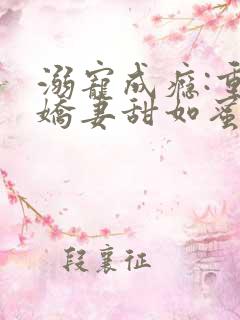 溺寵成癮:重
嬌妻甜如蜜
段襄征